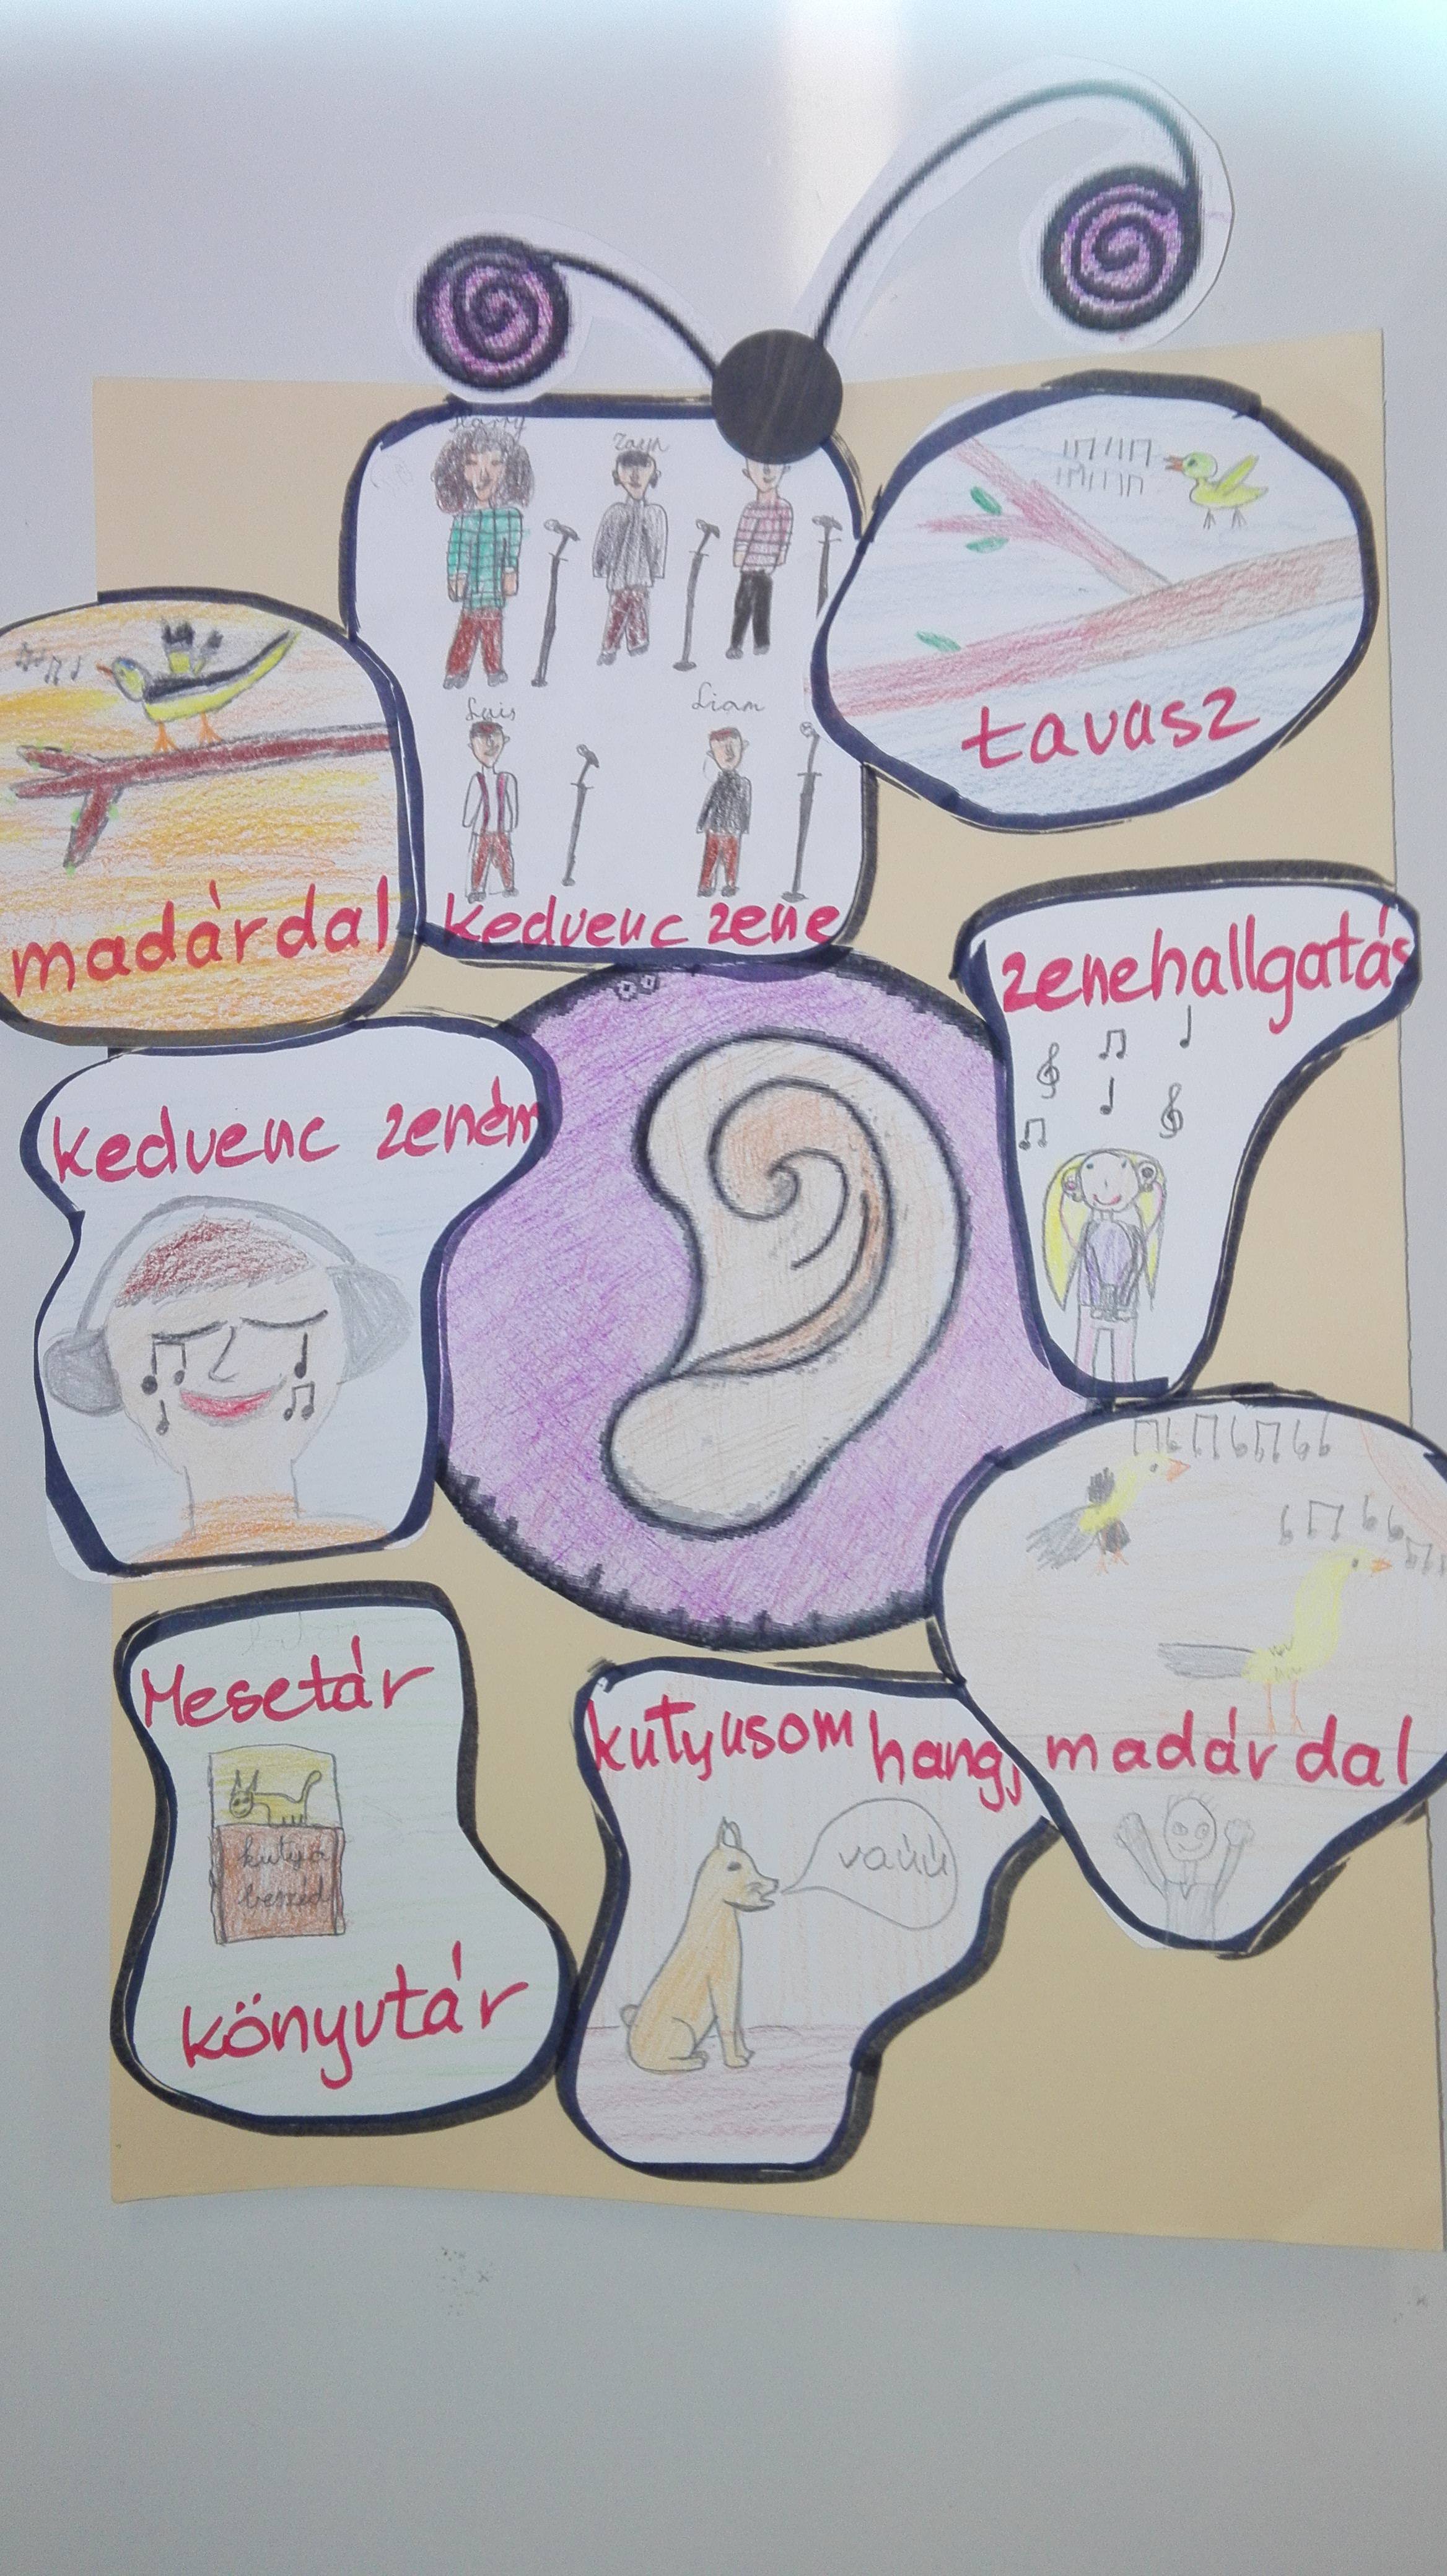 Harry
Zayn
Luis
Liam
kedvenc zene
tavasz
madárdal
zenehallgatás
kedvenc zeném
madárdal
Mesetár
kutya
beszéd
könyvtár
kutyusom hangj
vaúú